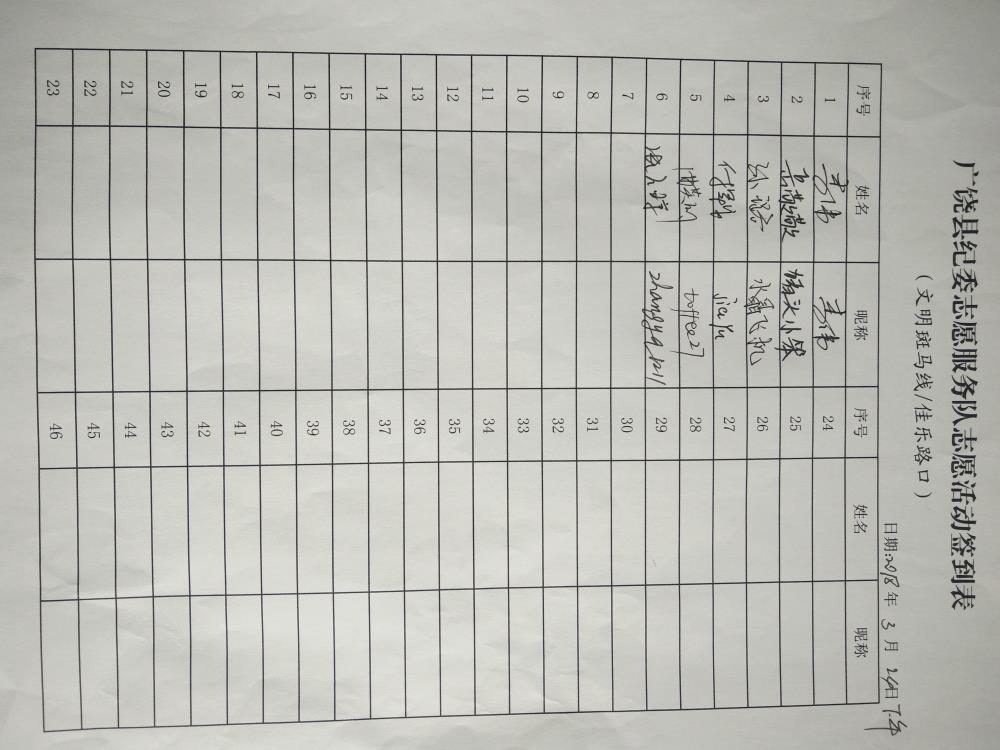 广饶县纪委志愿服务队志愿活动签到表
（文明斑马线/佳乐路口）
日期:2018年 3 月 日下午
序号 姓名 昵称 序号 姓名 昵称
1 24
2 25
3 水晶飞机 26
4 jia yu 27
5 toffee27 28
6 29
7 30
8 31
9 32
10 33
11 34
12 35
13 36
14 37
15 38
16 39
17 40
18 41
19 42
20 43
21 44
22 45
23 46